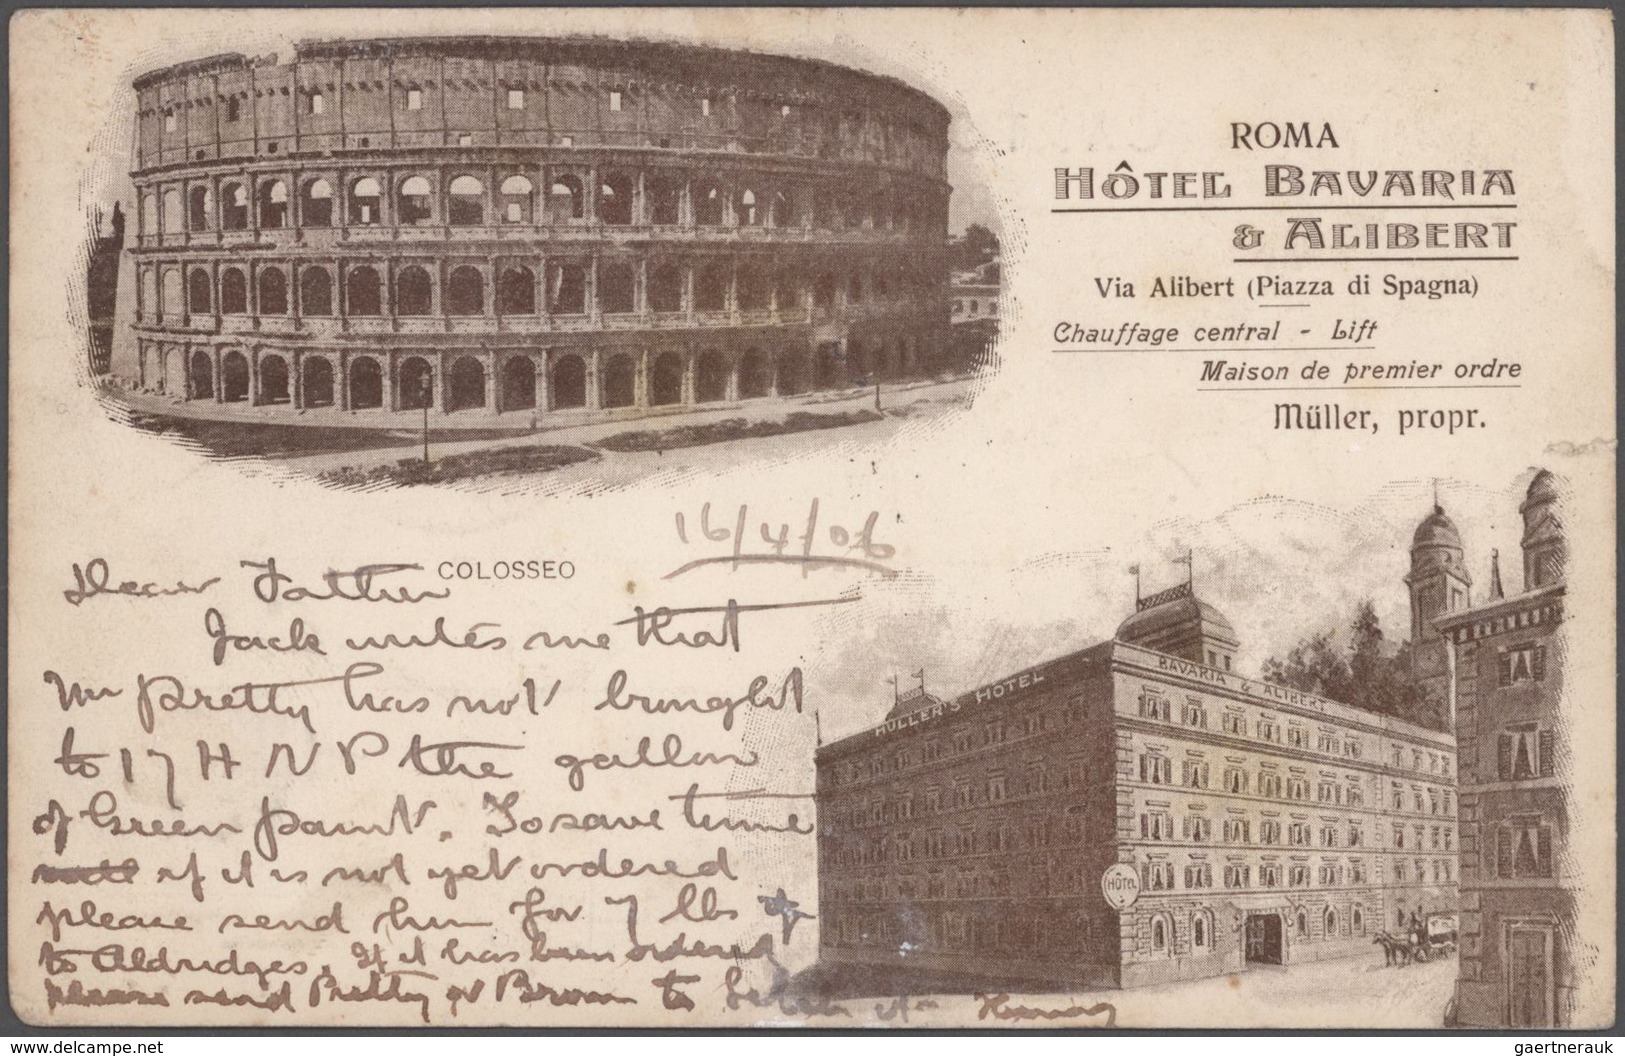 ROMA
HÔTEL BAVARIA
& ALIBERT
Via Alibert (Piazza di Spagna)
Chauffage central - Lift
Maison de premier ordre
Müller, propr.
COLOSSEO
16/4/06
Dear Father
Jack writes me that
Mr Pretty has not brought
to 17 H N P the gallon
of Green paint. To save time
if it is not yet ordered
please send him for 7 lbs of
to Aldridges. If it has been ordered
please send Pretty or Brown to
MÜLLER'S HOTEL
BAVARIA & ALIBERT
HÔTEL
delcampe.net
gaertnerauk